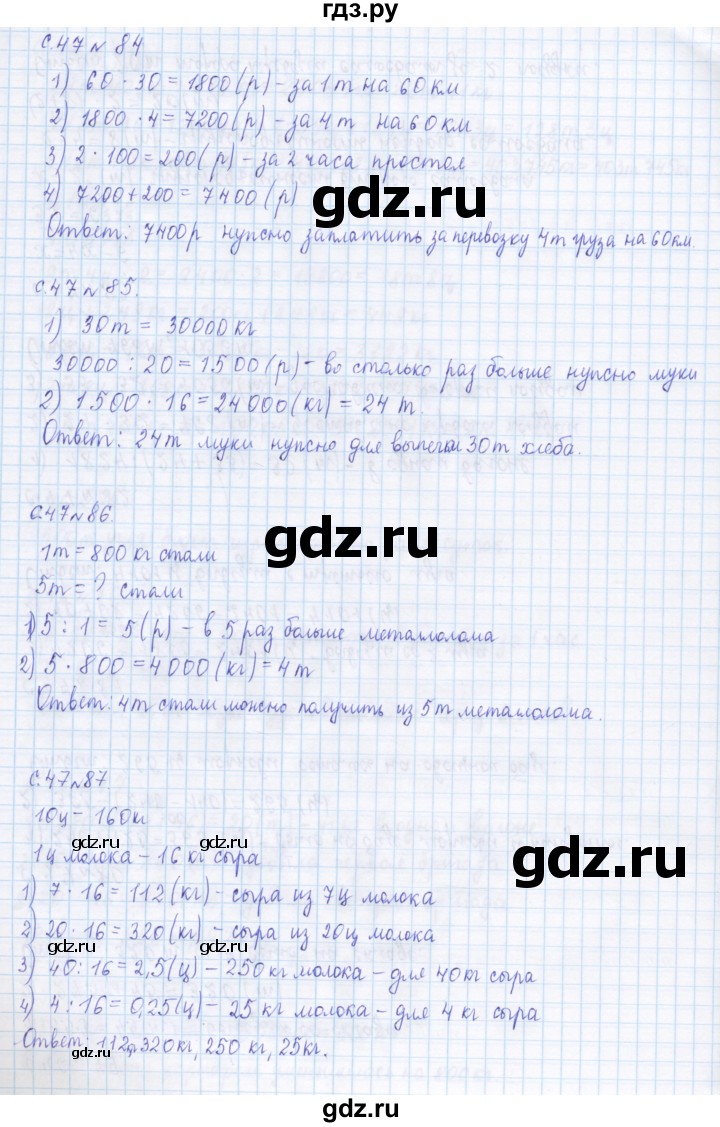 гдз.ру
с.47 № 84
1) 60 · 30 = 1800 (р) – за 1 т на 60 км
2) 1800 · 4 = 7200 (р) – за 4 т на 60 км
3) 2 · 100 = 200 (р) – за 2 часа простоя
4) 7200 + 200 = 7400 (р)
gdz.ru
Ответ: 7400 р нужно заплатить за перевозку 4 т груза на 60 км.
с.47 № 85.
1) 30 т = 30000 кг
30000 : 20 = 1500 (р) – во столько раз больше нужно муки
2) 1500 · 16 = 24000 (кг) = 24 т.
Ответ: 24 т муки нужно для выпечки 30 т хлеба.
с.47 № 86.
gdz.ru
1 т = 800 кг стали
5 т = ? стали
1) 5 : 1 = 5 (р) – в 5 раз больше металлолома
2) 5 · 800 = 4000 (кг) = 4 т
Ответ: 4 т стали можно получить из 5 т металлолома.
с.47 № 87.
10 ц – 160 кг
gdz.ru gdz.ru gdz.ru
1 ц молока – 16 кг сыра
1) 7 · 16 = 112 (кг) – сыра из 7 ц молока
2) 20 · 16 = 320 (кг) – сыра из 20 ц молока
gdz.ru gdz.ru
3) 40 : 16 = 2,5 (ц) – 250 кг молока – для 40 кг сыра
4) 4 : 16 = 0,25 (ц) – 25 кг молока – для 4 кг сыра
Ответ: 112, 320 кг, 250 кг, 25 кг.
gdz.ru
gdz.ru